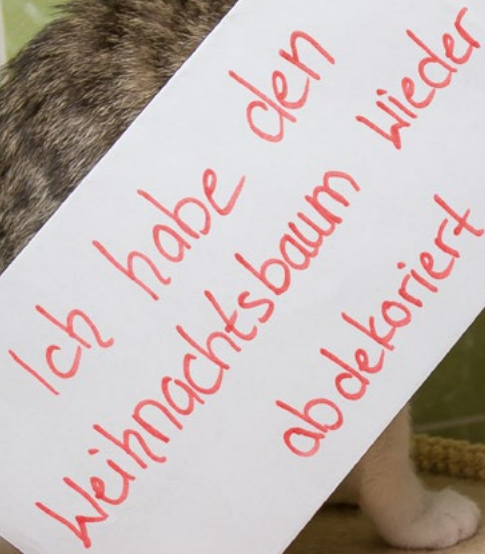 Ich habe den
Weihnachtsbaum wieder
abdekoriert